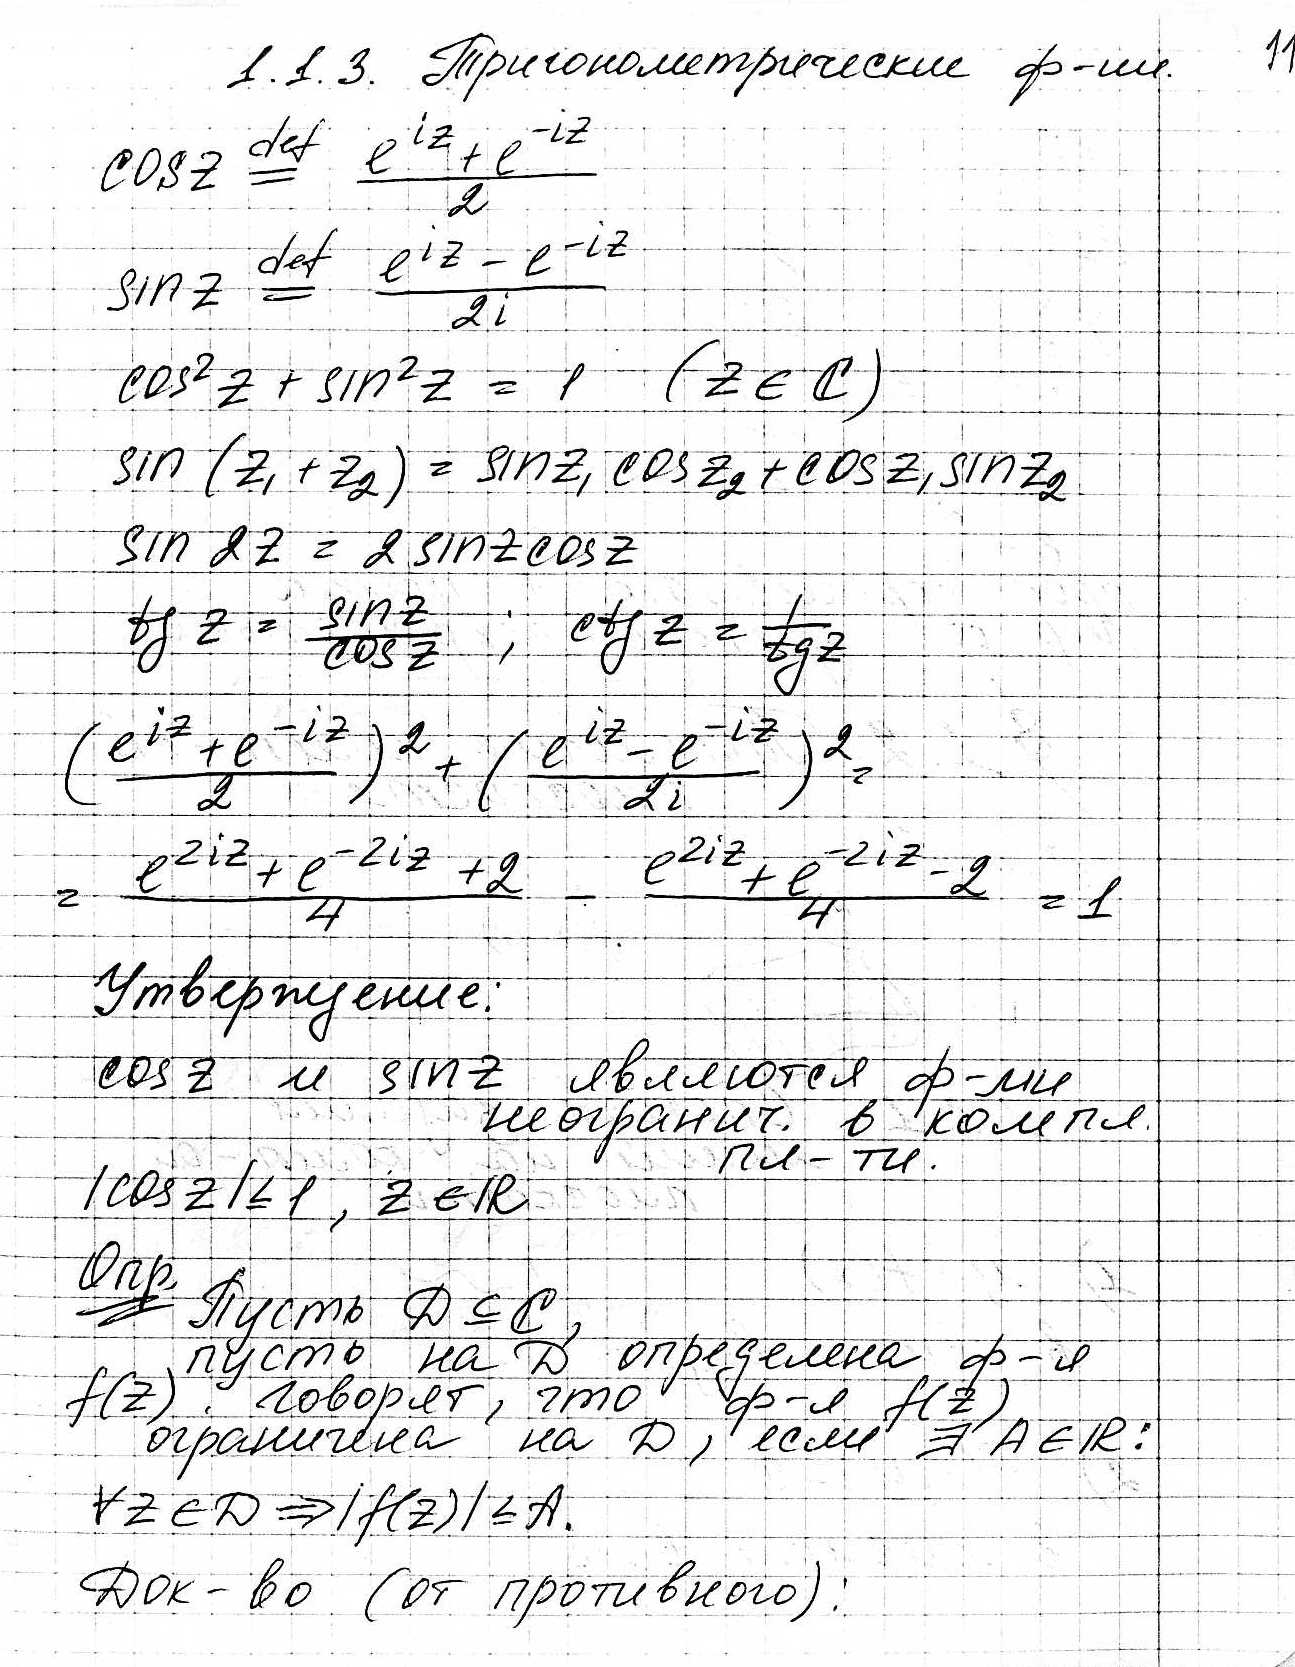 1.1.3. Тригонометрические ф-ии.
11
cos z def= (e^{iz} + e^{-iz})/2
sin z def= (e^{iz} - e^{-iz})/2i
cos² z + sin² z = 1 (z ∈ ℂ)
sin (z₁ + z₂) = sin z₁ cos z₂ + cos z₁ sin z₂
sin 2z = 2 sin z cos z
tg z = sin z/cos z ; ctg z = 1/tg z
((e^{iz} + e^{-iz})/2)² + ((e^{iz} - e^{-iz})/2i)² =
= (e^{2iz} + e^{-2iz} + 2)/4 - (e^{2iz} + e^{-2iz} - 2)/4 = 1
Утверждение:
cos z и sin z являются ф-ми
неогранич. в компл.
пл-ти.
|cos z| ≤ 1, z ∈ ℝ
Опр. Пусть D ⊆ ℂ,
пусть на D определена ф-я
f(z). говорят, что ф-я f(z)
ограничена на D, если ∃ A ∈ ℝ:
∀ z ∈ D ⇒ |f(z)| ≤ A.
Док-во (от противного):